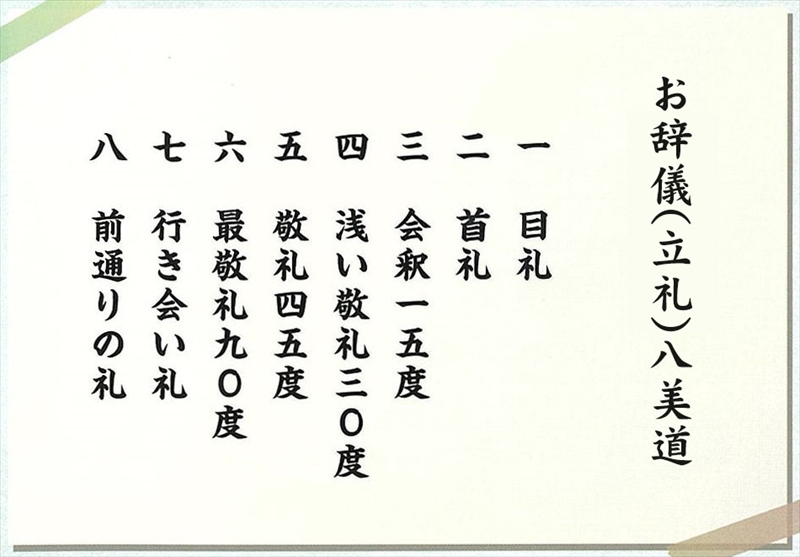 お辞儀(立礼)八美道
一 目礼
二 首礼
三 会釈一五度
四 浅い敬礼三〇度
五 敬礼四五度
六 最敬礼九〇度
七 行き会い礼
八 前通りの礼